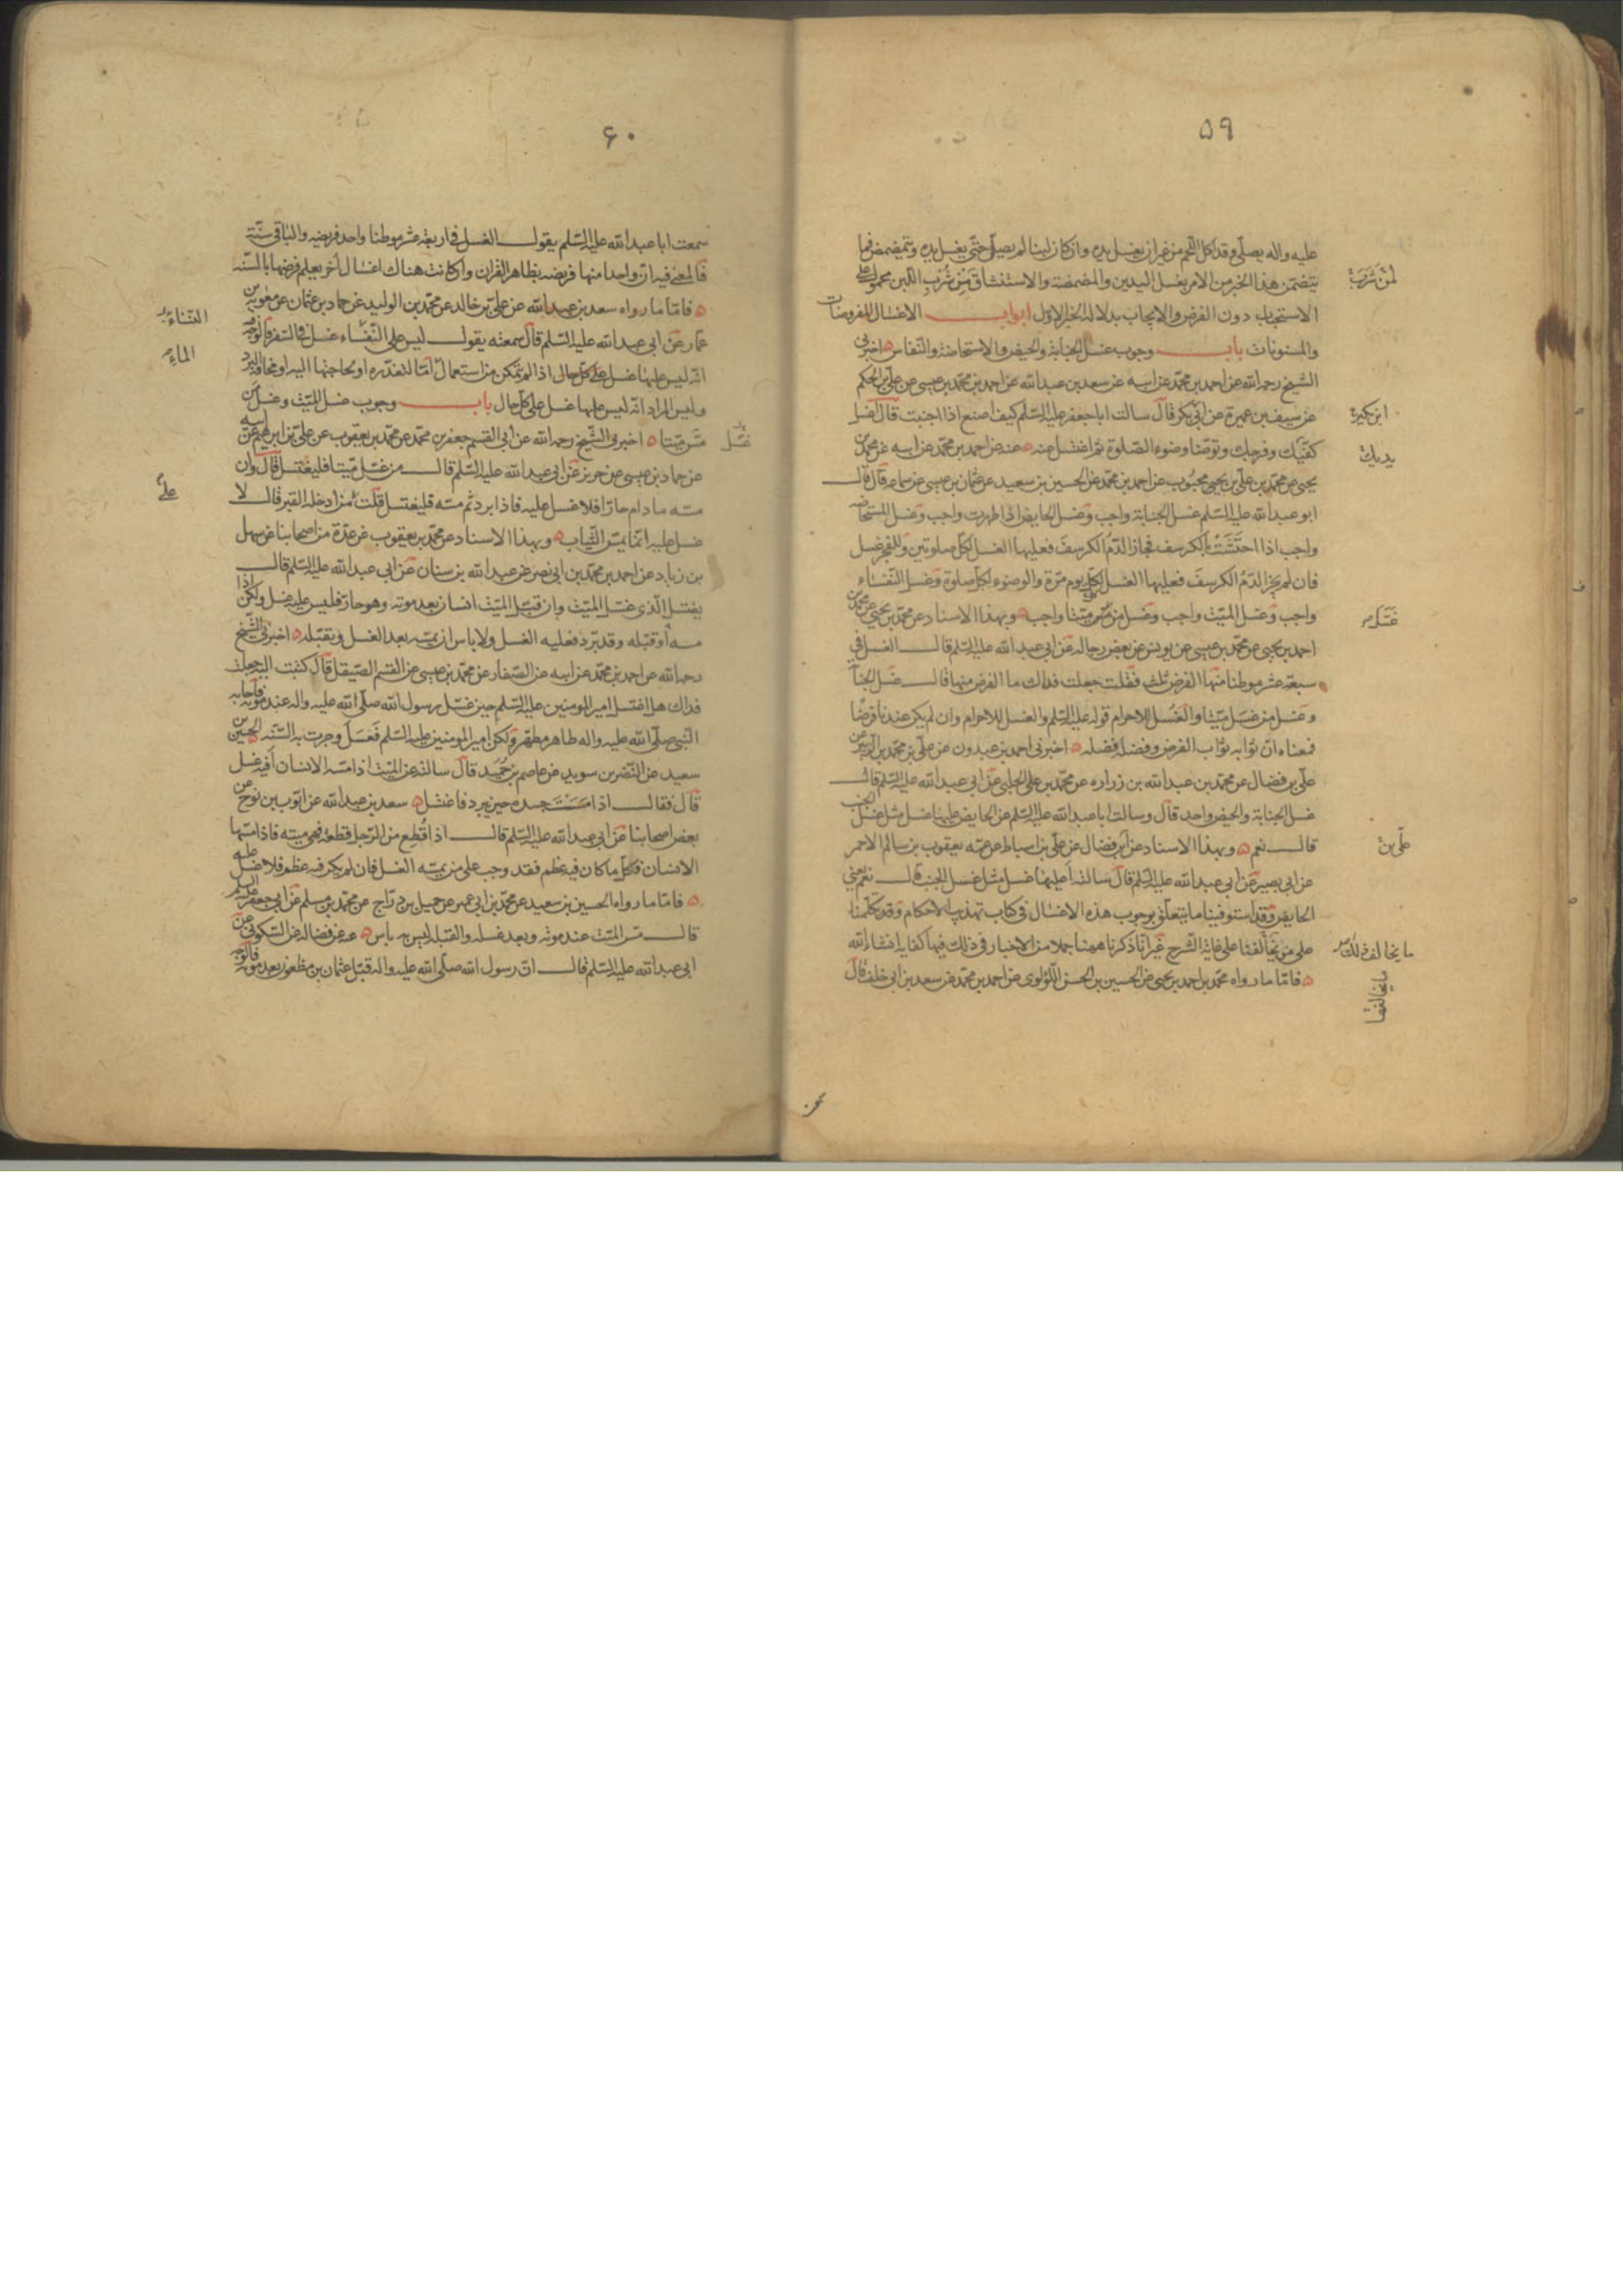 ۵۹
عليه واله يصلّى وقد اكل اللحم من غير ان يغسل يده وان كان لبنا لم يصلّ حتّى يغسل يده ويتمضمض فما
يتضمّن هذا الخبر من الامر بغسل اليدين والمضمضة والاستنشاق مِن شُربِ اللبن محمول على
لمن شرب
الاستحباب دون الفرض والايجاب بدلالة الخبر الاوّل ابواب الاغسال المفروضات
والمسنونات باب وجوب غسل الجنابة والحيض والاستحاضة والنفاس اخبرنى
الشيخ رحمه الله عن احمد بن محمّد عن ابيه عن سعد بن عبد الله عن احمد بن محمّد بن عيسى عن علىّ بن الحكم
عن سيف بن عميرة عن ابى بكر قال سالت ابا جعفر عليه السّلم كيف اصنع اذا اجنبت قال اغسل
كفّيك وفرجك وتوضّا وضوء الصّلوة ثم اغتسل عنه عن احمد بن محمّد عن ابيه عن محمّد بن
يديك
يحيى عن محمّد بن علىّ بن محبُوب عن احمد بن محمّد عن الحسين بن سعيد عن عثمان بن عيسى عن سماعه قال قال
ابو عبد الله عليه السّلم غسل الجنابة واجب وغسل الحايض اذا طهرت واجب وغسل المستحاضه
واجب اذا احتَشَتْ بالكرسف فجاز الدّمُ الكرسفَ فعليها الغسل لكلّ صلوتين وللفجر غسل
فان لم يجز الدّمُ الكرسفَ فعليها الغسل كلّ يوم مرّة والوضوء لكلّ صلوة وغسل النفساء
واجب وغسل الميّت واجب وغسل من مسّ ميّتا واجب وبهذا الاسناد عن محمّد بن يحيى عن محمّد بن
غسّل
احمد بن يحيى عن محمّد بن عيسى عن يونس عن بعض رجاله عن ابى عبد الله عليه السّلم قال الغسل فى
سبعة عشر موطنا منها الفرض ثلث فقلت جعلت فداك ما الفرض منها قال غسل الجنابة
وغسل من غسّل ميّتا والغُسل للاحرام قوله عليه السّلم والغسل للاحرام وان لم يكن عندنا فرضًا
فمعناه انّ ثوابه ثواب الفرض وفضله فضله اخبرنى احمد بن عبدون عن علىّ بن محمّد بن الزبير عن
علىّ بن فضال عن محمّد بن عبد الله بن زراره عن محمّد بن على الحلبى عن ابى عبد الله عليه السّلم قال
غسل الجنابة والحيض واحد قال وسالت ابا عبد الله عليه السّلم عن الحايض عليها غسل مثل غسل الجنب
قال نعم وبهذا الاسناد عن ابن فضال عن علىّ بن اسباط عن عمّه يعقوب بن سالم الاحمر
علىّ بن
عن ابى بصير عن ابى عبد الله عليه السّلم قال سالته اَعليها غسل مثل غسل الجنب قال نعم يعنى
الحايض وقد استوفينا ما يتعلّق بوجوب هذه الاغسال فى كتاب تهذيب الاحكام وقد تكلّمنا
على من يُخالفنا على غاية الشّرح غير انّا ذكرنا ههنا جملا من الاخبار فى ذلك فيها كفاية انشاء الله
ما يخالف ذلك
فامّا ما رواه محمّد بن احمد بن يحيى عن الحسين بن الحسن اللّؤلوى عن احمد بن محمّد عن سعد بن ابى خلف قال
ما يخالفها
۶۰
سمعت ابا عبد الله عليه السّلم يقول الغسل فى اربعة عشر موطنا واحد فريضه والباقى سنّة
فالمعنى فيه انّ واحدا منها فريضه بظاهر القران وان كانت هناك اغسال أخر يعلم فرضها بالسنّه
فامّا ما رواه سعد بن عبد الله عن علىّ بن خالد عن محمّد بن الوليد عن حماد بن عثمان عن معويه بن
عمّار عن ابى عبد الله عليه السّلم قال سمعته يقول ليس على النّفساء غسل فى السّفر فالوجه فيه
النفساء
انّه ليس عليها غسل على كلّ حال اذا لم يتمكن من استعمال امّا لتعذّره او لحاجتها اليه او مخافة البرد
الماء
وليس المراد انّه ليس عليها غسل على كلّ حال باب وجوب غسل الميّت وغسل من
مسّ ميّتا اخبرنى الشّيخ رحمه الله عن ابى القسم جعفر بن محمّد عن محمّد بن يعقوب عن علىّ بن ابرهيم عن ابيه
غسّل
عن حماد بن عيسى عن حريز عن ابى عبد الله عليه السّلم قال من غسّل ميّتا فليغتسل قال وان
مسّه ما دام حارّا فلا غسل عليه فاذا برد ثم مسّه فليغتسل قلت فمن ادخله القبر قال لا
غسل عليه انّما يمسّ الثياب وبهذا الاسناد عن محمّد بن يعقوب عن عدّة من اصحابنا عن سهل
بن زياد عن احمد بن محمّد بن ابى نصر عن عبد الله بن سنان عن ابى عبد الله عليه السّلم قال
يغتسل الّذى غسّل الميّت وان قبّل الميّت انسان بعد موته وهو حارّ فليس عليه غسل ولكن اذا
مسّه أو قبّله وقد برد فعليه الغسل ولا باس ان يمسّه بعد الغسل ويقبّله اخبرنى الشّيخ
رحمه الله عن احمد بن محمّد عن ابيه عن الصّفار عن محمّد بن عيسى عن القسم الصّيقل قال كتبت اليه جعلت
فداك هل اغتسل امير المومنين عليه السّلم حين غسّل رسول الله صلّى الله عليه واله عند موته فاجابه
النّبى صلّى الله عليه واله طاهر مطهّر ولكن امير المومنين عليه السّلم فعَل وجرت به السّنّه الحسين بن
سعيد عن النّضر بن سويد عن عاصم بن حُمَيد قال سالته عن الميّت اذا مسّه الانسان أفيه غسل
قال فقال اذا مَسَسْتَ جسده حين يبرد فاغتسل سعد بن عبد الله عن ايّوب بن نوح عن
بعض اصحابنا عن ابى عبد الله عليه السّلم قال اذا قُطِع من الرّجل قطعة فهى ميتة فاذا مسّها
الانسان فكلّ ما كان فيه عظم فقد وجب على من يمسّه الغسل فان لم يكن فيه عظم فلا غسل عليه
فامّا ما رواه الحسين بن سعيد عن محمّد بن ابى عمير عن جميل بن درّاج عن محمّد بن مسلم عن ابى جعفر عليه السلم
قال مسّ الميّت عند موته وبعد غسله والقبلة ليس به باس عنه عن فضاله عن السّكونى عن
ابى عبد الله عليه السّلم قال انّ رسول الله صلّى الله عليه واله قبّل عثمان بن مظعون بعد موته فالوجه